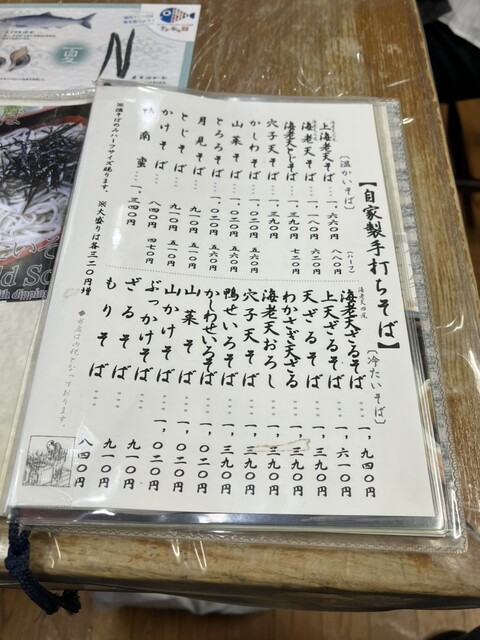 【自家製手打ちそば】
〔温かいそば〕
(ハーフ)
上海老天そば … 一、六六〇円 八八〇円
海老天そば … 一、一八〇円 六二〇円
海老天とじそば … 一、三九〇円 七二〇円
穴子天そば … 一、三九〇円
かしわそば … 一、〇二〇円 五六〇円
山菜そば … 一、〇二〇円 五六〇円
とろろそば … 一、〇二〇円 五六〇円
月見そば … 九一〇円 五一〇円
とじそば … 九一〇円 五一〇円
かけそば … 八四〇円 四七〇円
鴨南蛮 … 一、三四〇円
※温そばのみハーフサイズ賜ります。 ※大盛りは各三二〇円増
〔冷たいそば〕
海老天ざるそば … 一、九四〇円
上天ざるそば … 一、六一〇円
天ざるそば … 一、三九〇円
わかさぎ天ざる … 一、三九〇円
海老天おろし … 一、三九〇円
穴子天そば … 一、三九〇円
鴨せいろそば … 一、三九〇円
かしわせいろそば … 一、〇二〇円
山菜そば … 一、〇二〇円
山かけそば … 一、〇二〇円
ぶっかけそば … 九一〇円
ざるそば … 九一〇円
もりそば … 八四〇円
◆表示は内税となっております。
N
夏